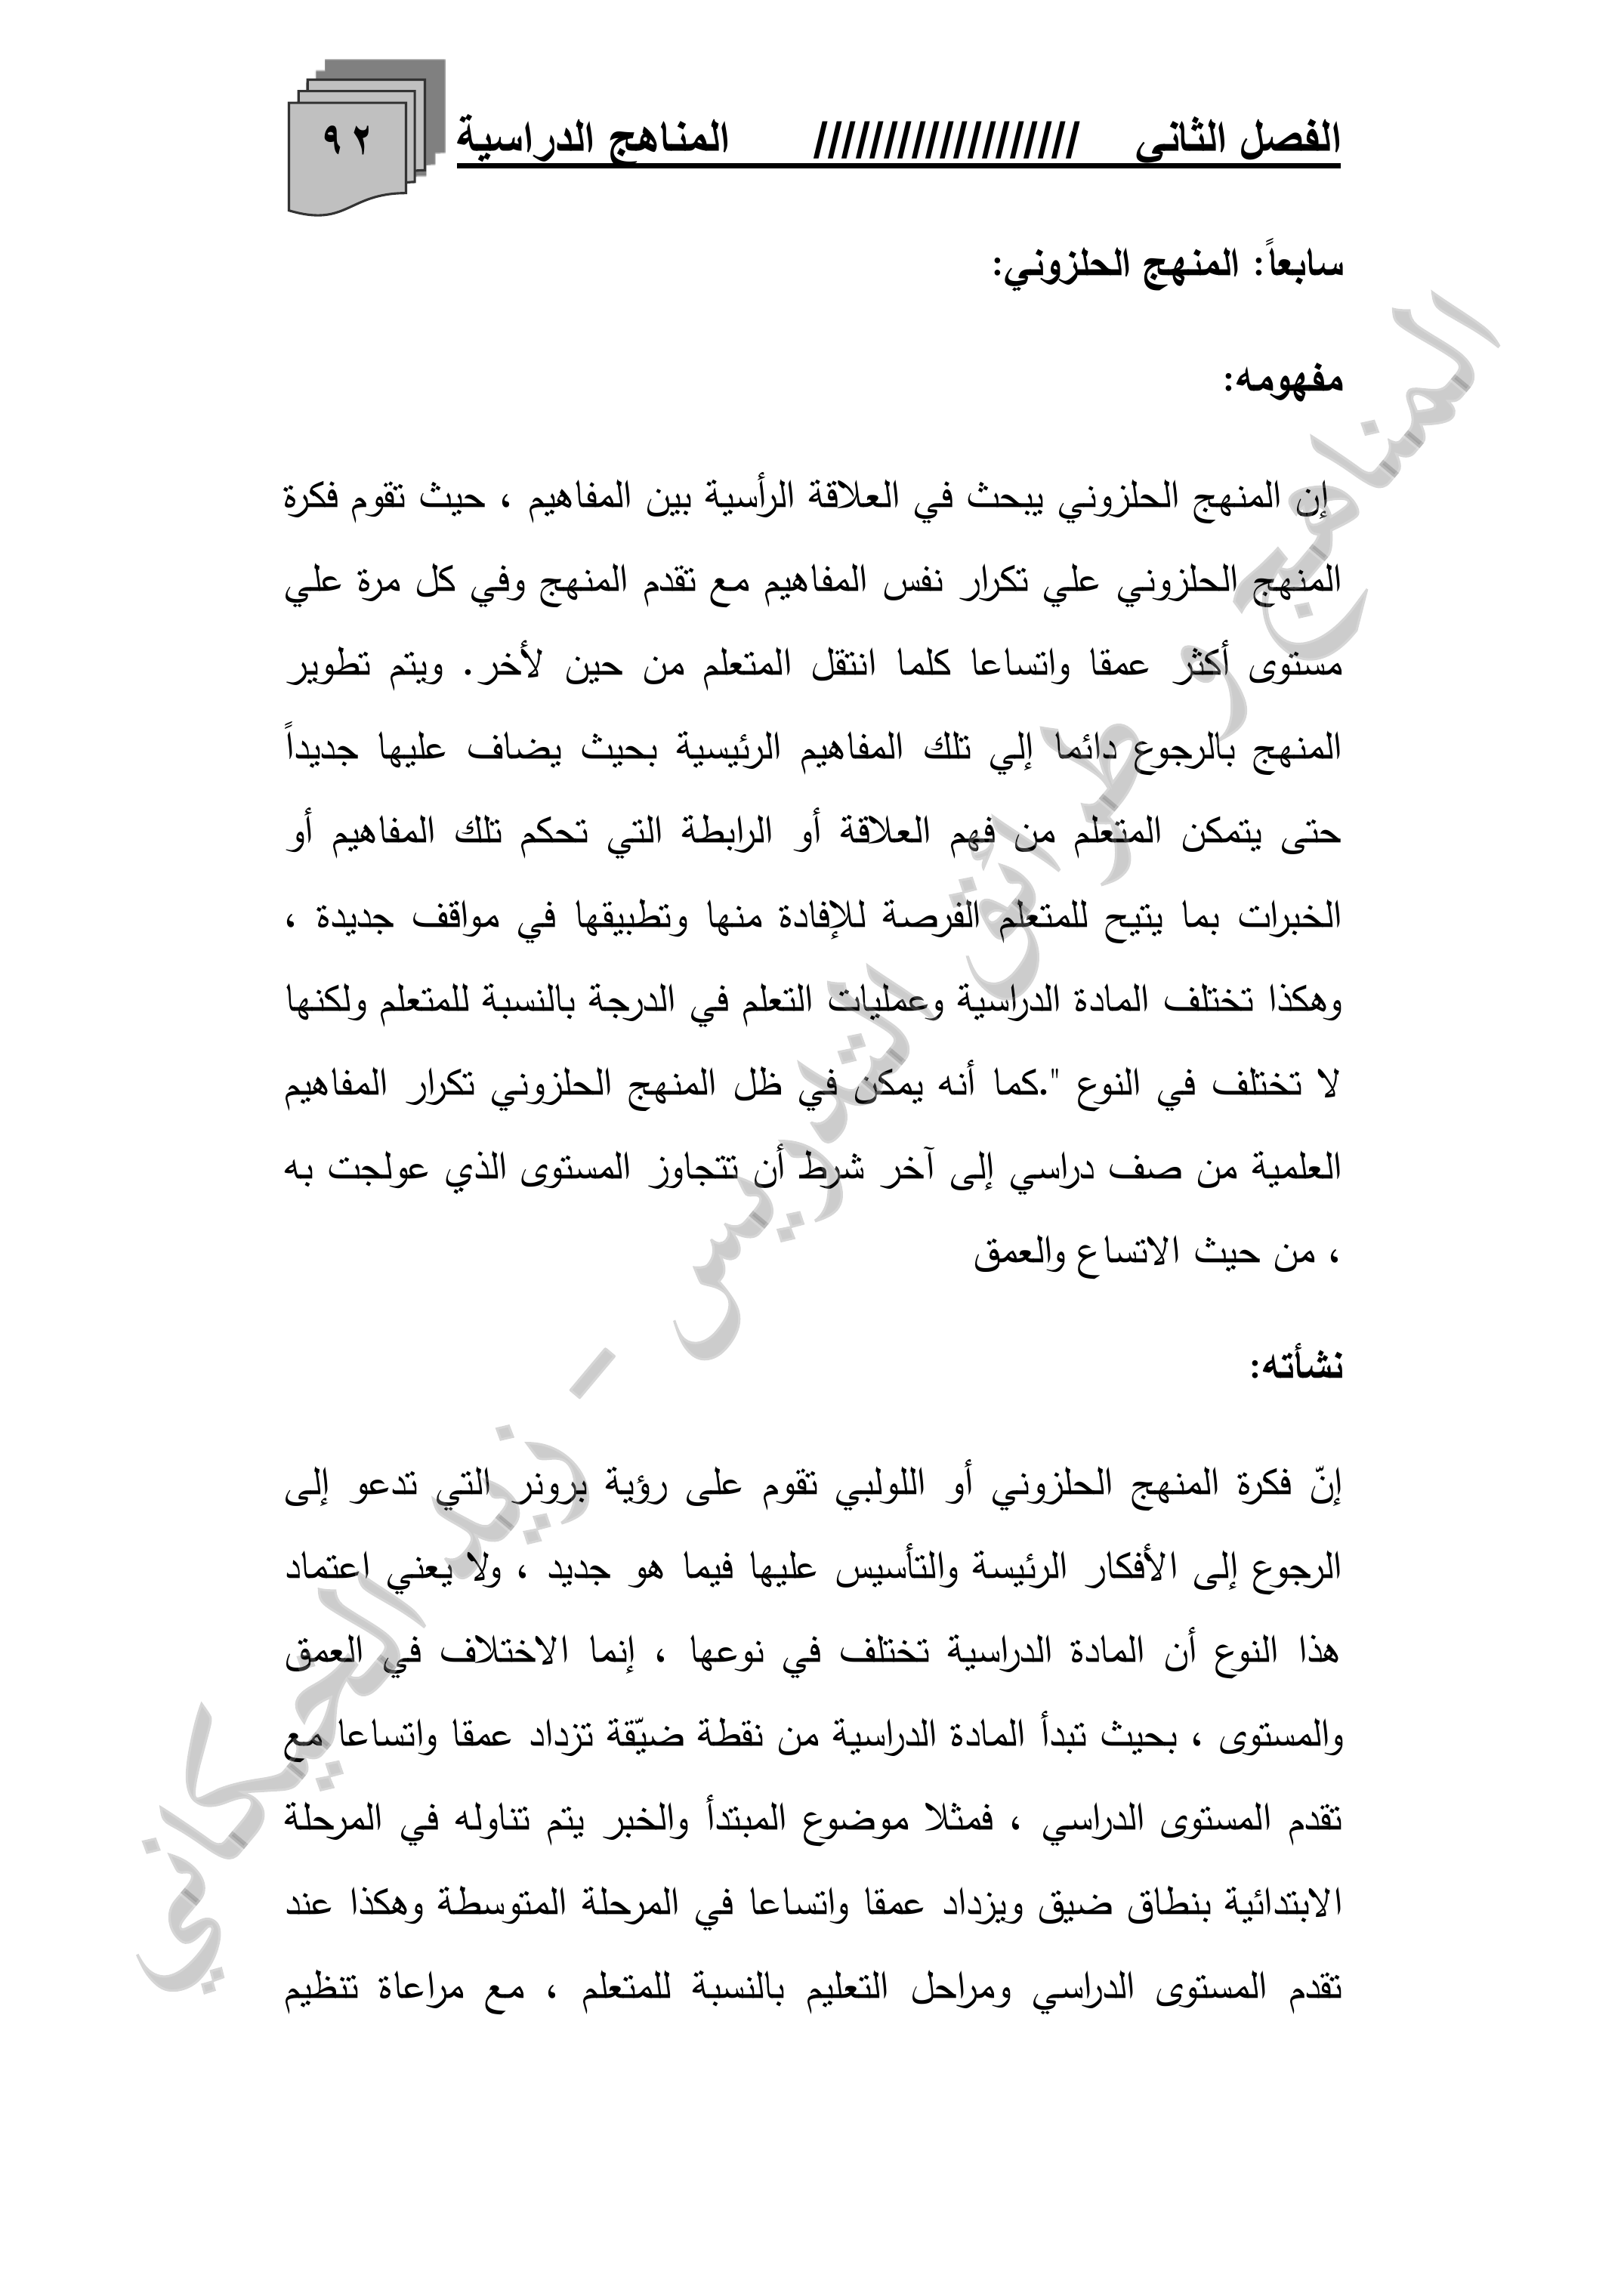 الفصل الثاني /////////////////// المناهج الدراسية
٩٢
سابعاً: المنهج الحلزوني:
مفهومه:
إن المنهج الحلزوني يبحث في العلاقة الرأسية بين المفاهيم ، حيث تقوم فكرة
المنهج الحلزوني علي تكرار نفس المفاهيم مع تقدم المنهج وفي كل مرة علي
مستوى أكثر عمقا واتساعا كلما انتقل المتعلم من حين لأخر. ويتم تطوير
المنهج بالرجوع دائما إلي تلك المفاهيم الرئيسية بحيث يضاف عليها جديداً
حتى يتمكن المتعلم من فهم العلاقة أو الرابطة التي تحكم تلك المفاهيم أو
الخبرات بما يتيح للمتعلم الفرصة للإفادة منها وتطبيقها في مواقف جديدة ،
وهكذا تختلف المادة الدراسية وعمليات التعلم في الدرجة بالنسبة للمتعلم ولكنها
لا تختلف في النوع ".كما أنه يمكن في ظل المنهج الحلزوني تكرار المفاهيم
العلمية من صف دراسي إلى آخر شرط أن تتجاوز المستوى الذي عولجت به
، من حيث الاتساع والعمق
نشأته:
إنّ فكرة المنهج الحلزوني أو اللولبي تقوم على رؤية برونر التي تدعو إلى
الرجوع إلى الأفكار الرئيسة والتأسيس عليها فيما هو جديد ، ولا يعني اعتماد
هذا النوع أن المادة الدراسية تختلف في نوعها ، إنما الاختلاف في العمق
والمستوى ، بحيث تبدأ المادة الدراسية من نقطة ضيّقة تزداد عمقا واتساعا مع
تقدم المستوى الدراسي ، فمثلا موضوع المبتدأ والخبر يتم تناوله في المرحلة
الابتدائية بنطاق ضيق ويزداد عمقا واتساعا في المرحلة المتوسطة وهكذا عند
تقدم المستوى الدراسي ومراحل التعليم بالنسبة للمتعلم ، مع مراعاة تنظيم
المناهج و طرائق التدريس - زيد الخيكاني